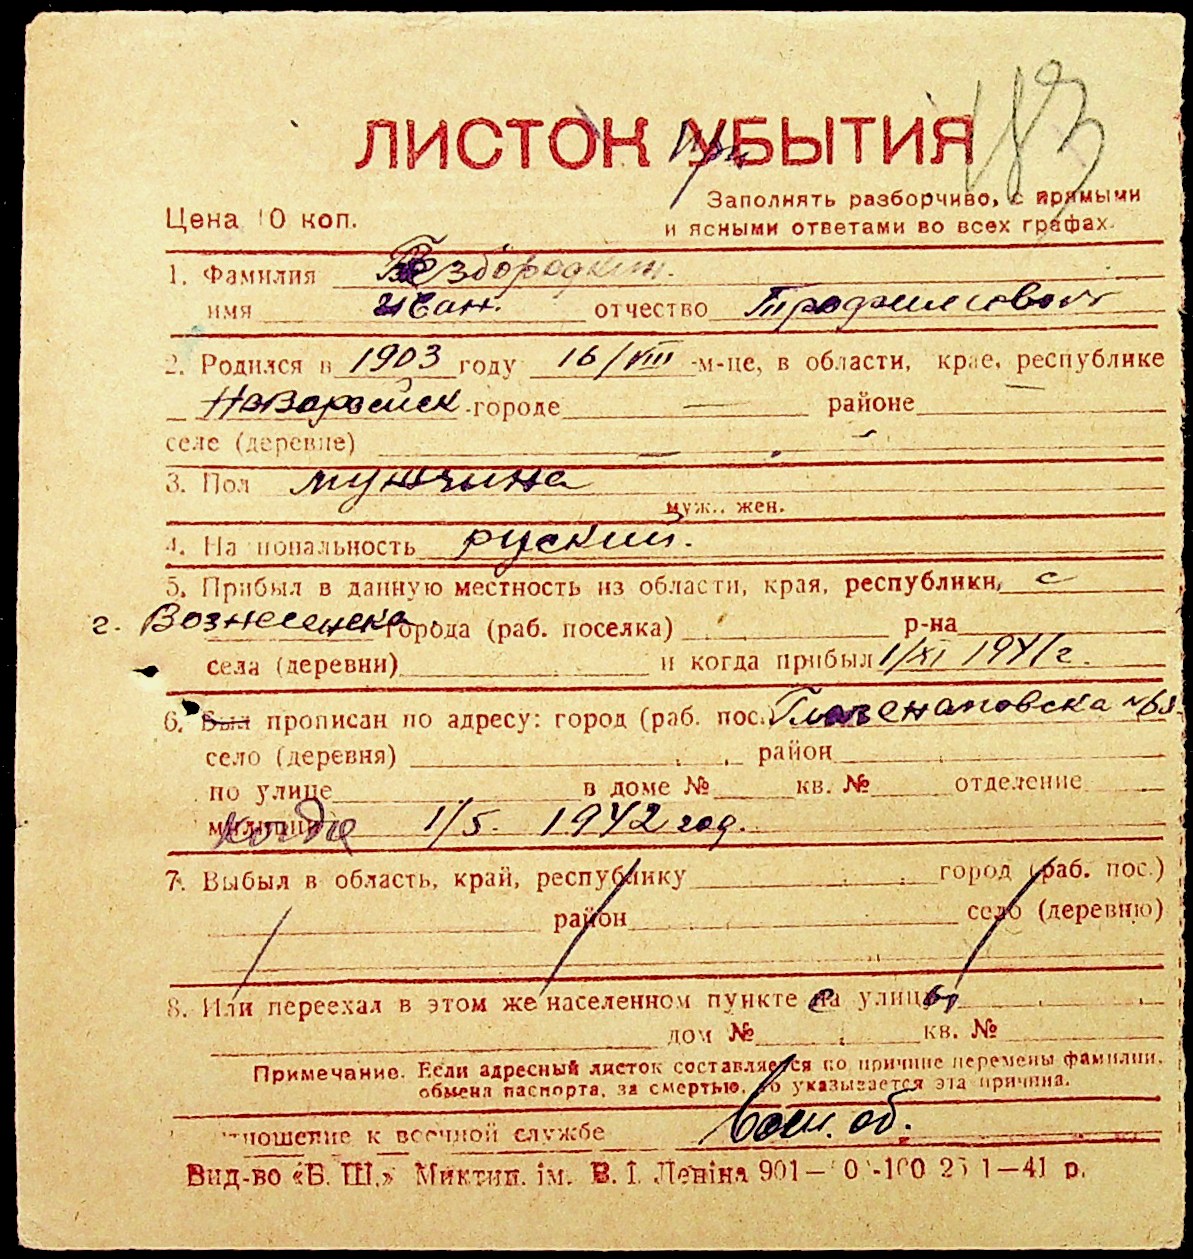 183
ЛИСТОК УБЫТИЯ
При
Заполнять разборчиво, с прямыми
Цена 10 коп.
и ясными ответами во всех графах.
1. Фамилия Безбородкин.
имя Иван. отчество Трофимович
2. Родился в 1903 году 16/VIII м-це, в области, крае, республике
городе — районе —
селе (деревне) —
3. Пол мужчина
муж., жен.
4. Национальность руский.
5. Прибыл в данную местность из области, края, республики, с
г. Вознесенска города (раб. поселка) р-на
села (деревни) и когда прибыл 1/XI 1941 г.
6. Был прописан по адресу: город (раб. пос.
село (деревня) район
по улице в доме № кв. № отделение
милиции когда 1/5. 1942 год.
7. Выбыл в область, край, республику город (раб. пос.)
район село (деревню)
8. Или переехал в этом же населенном пункте на улицу
дом № кв. №
Примечание. Если адресный листок составляется по причине перемены фамилии,
обмена паспорта, за смертью, то указывается эта причина.
Отношение к военной службе
Вид-во «Б. Ш.» Миктип. ім. В. І. Леніна 901— 1—41 р.